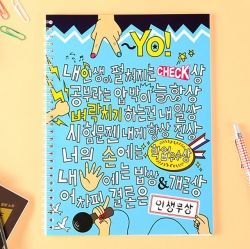 ~YO!
내 인생이 펼쳐지는 CHECK상
공부라는 압박이 늘 항상
벼락치기 하는건 내 일상
시험문젠 내게 항상 진상
너의 손에는
내 에는 밥상 & 개근상
어차피 결론은
인생무상